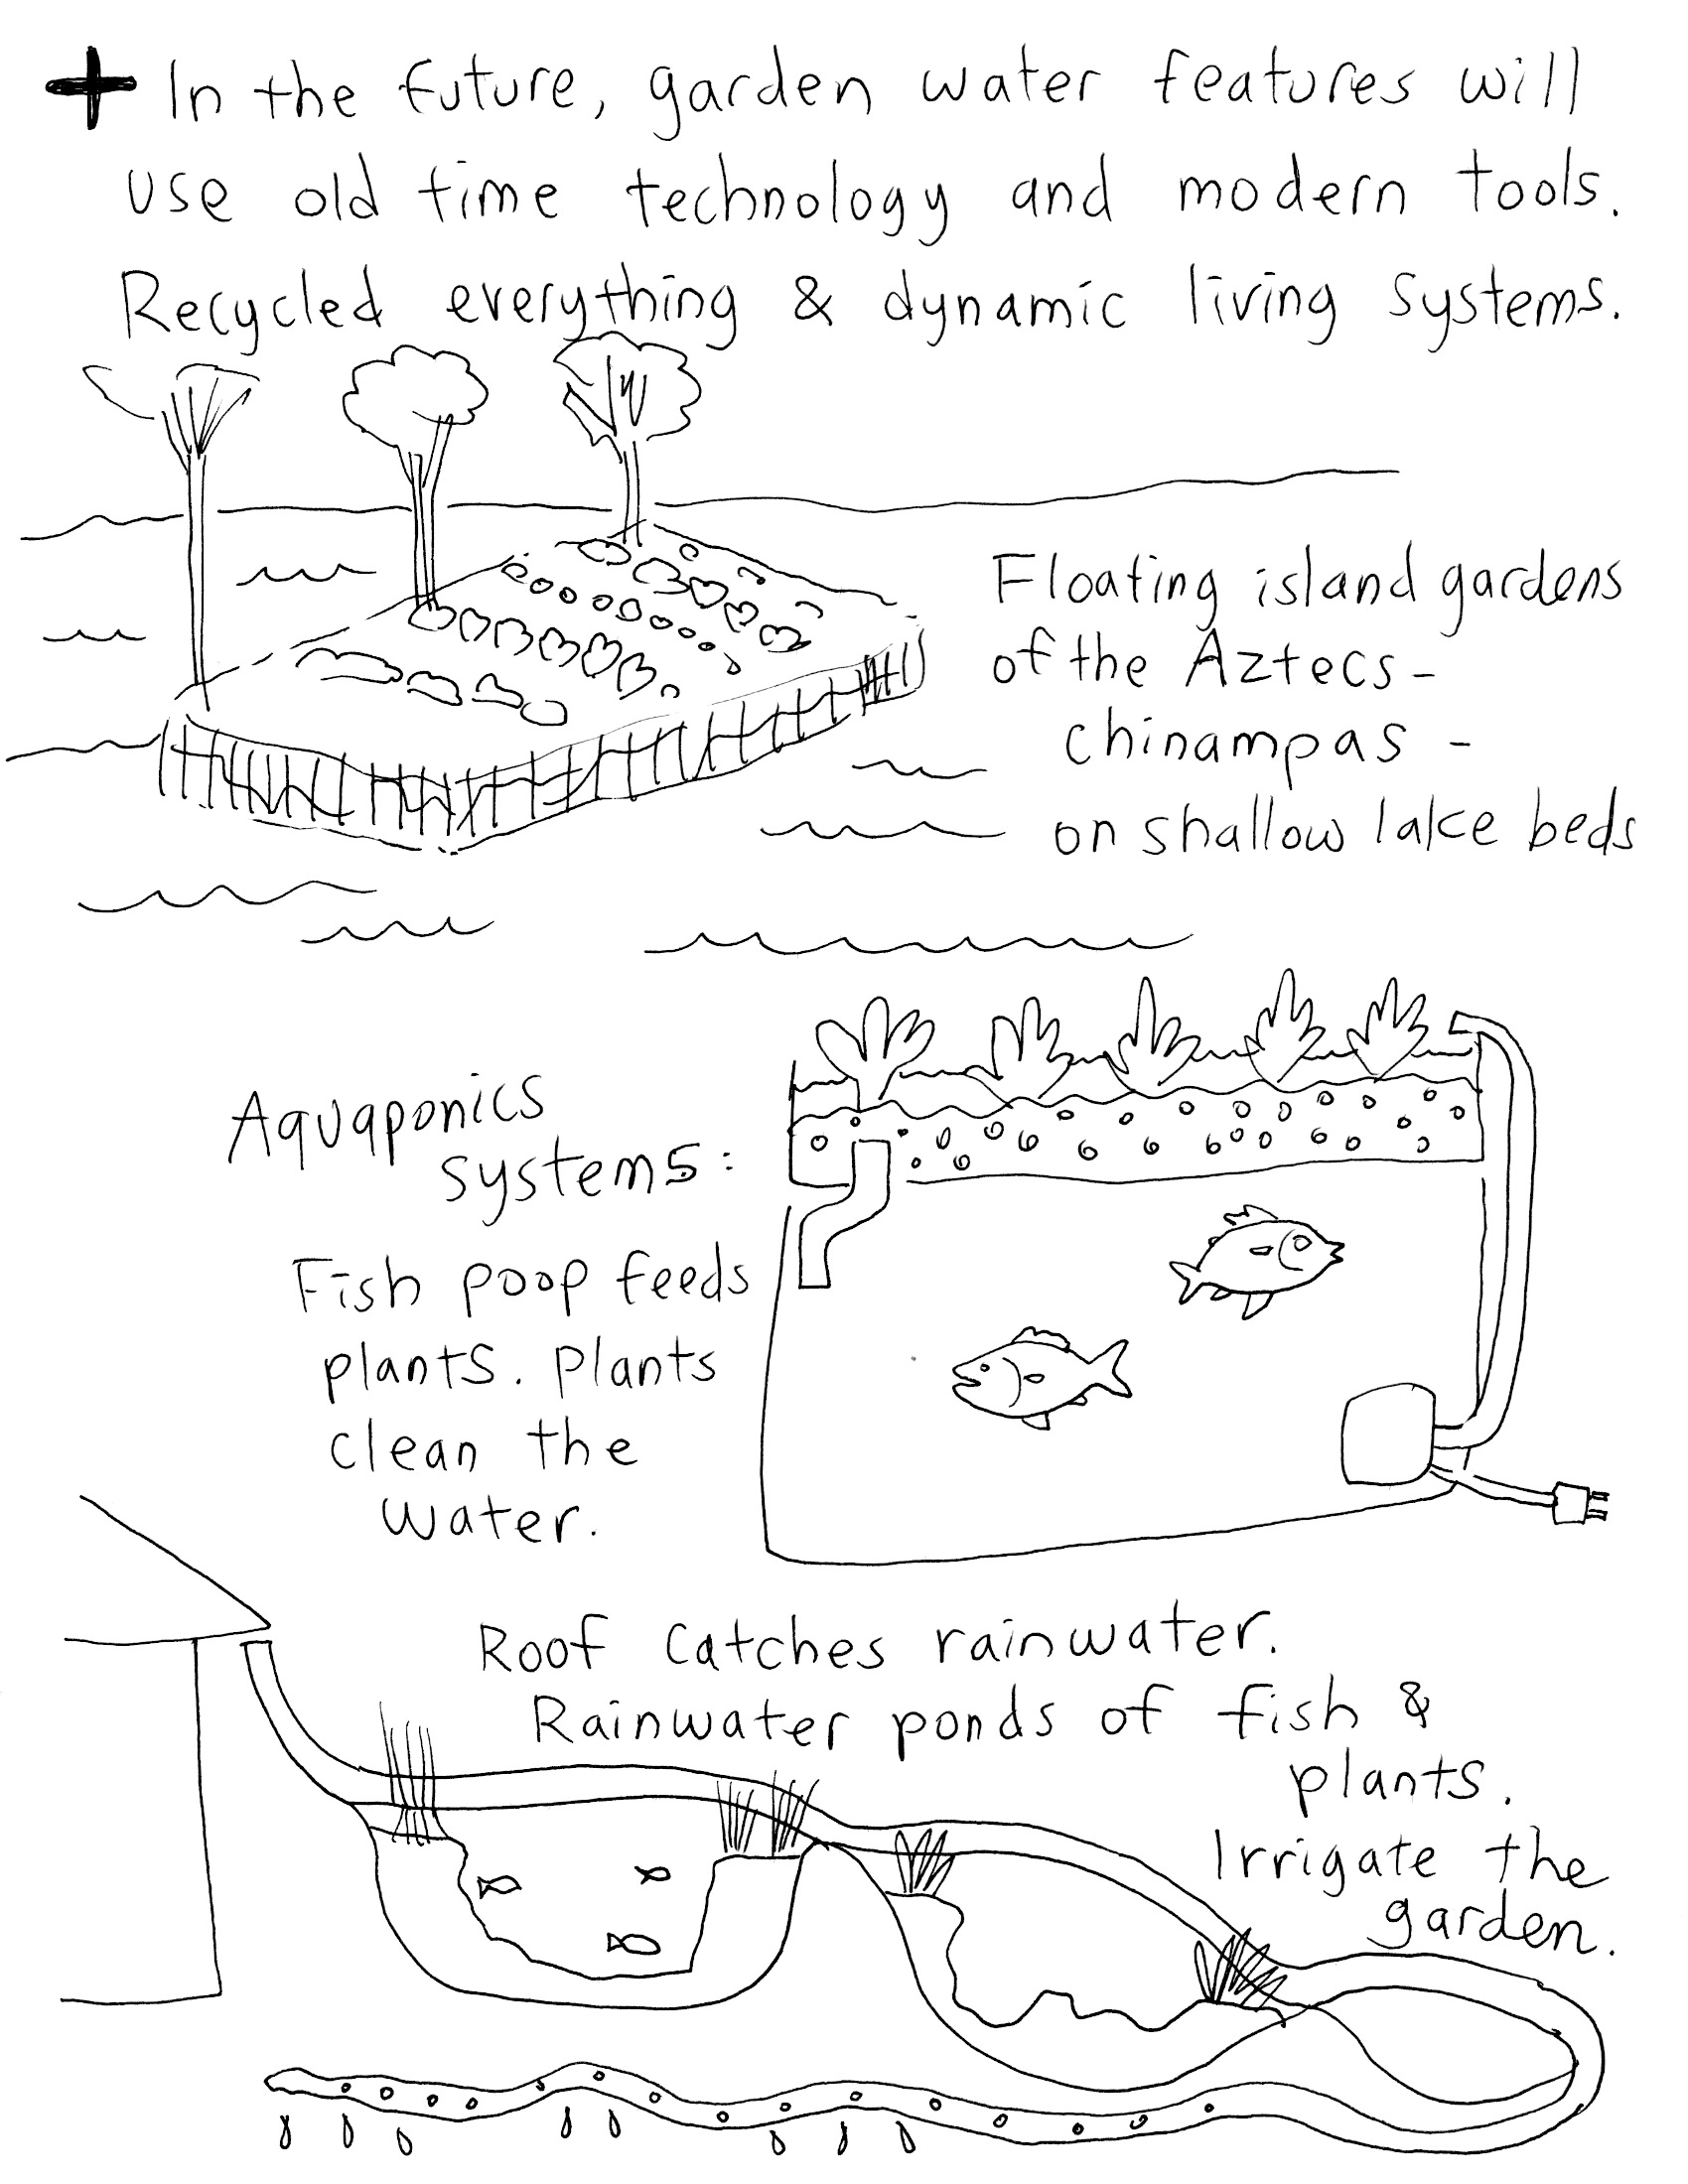 + In the future, garden water features will
use old time technology and modern tools.
Recycled everything & dynamic living systems.
Floating island gardens
of the Aztecs -
chinampas -
on shallow lake beds
Aquaponics
systems:
Fish poop feeds
plants. Plants
clean the
water.
Roof catches rainwater.
Rainwater ponds of fish &
plants.
Irrigate the
garden.